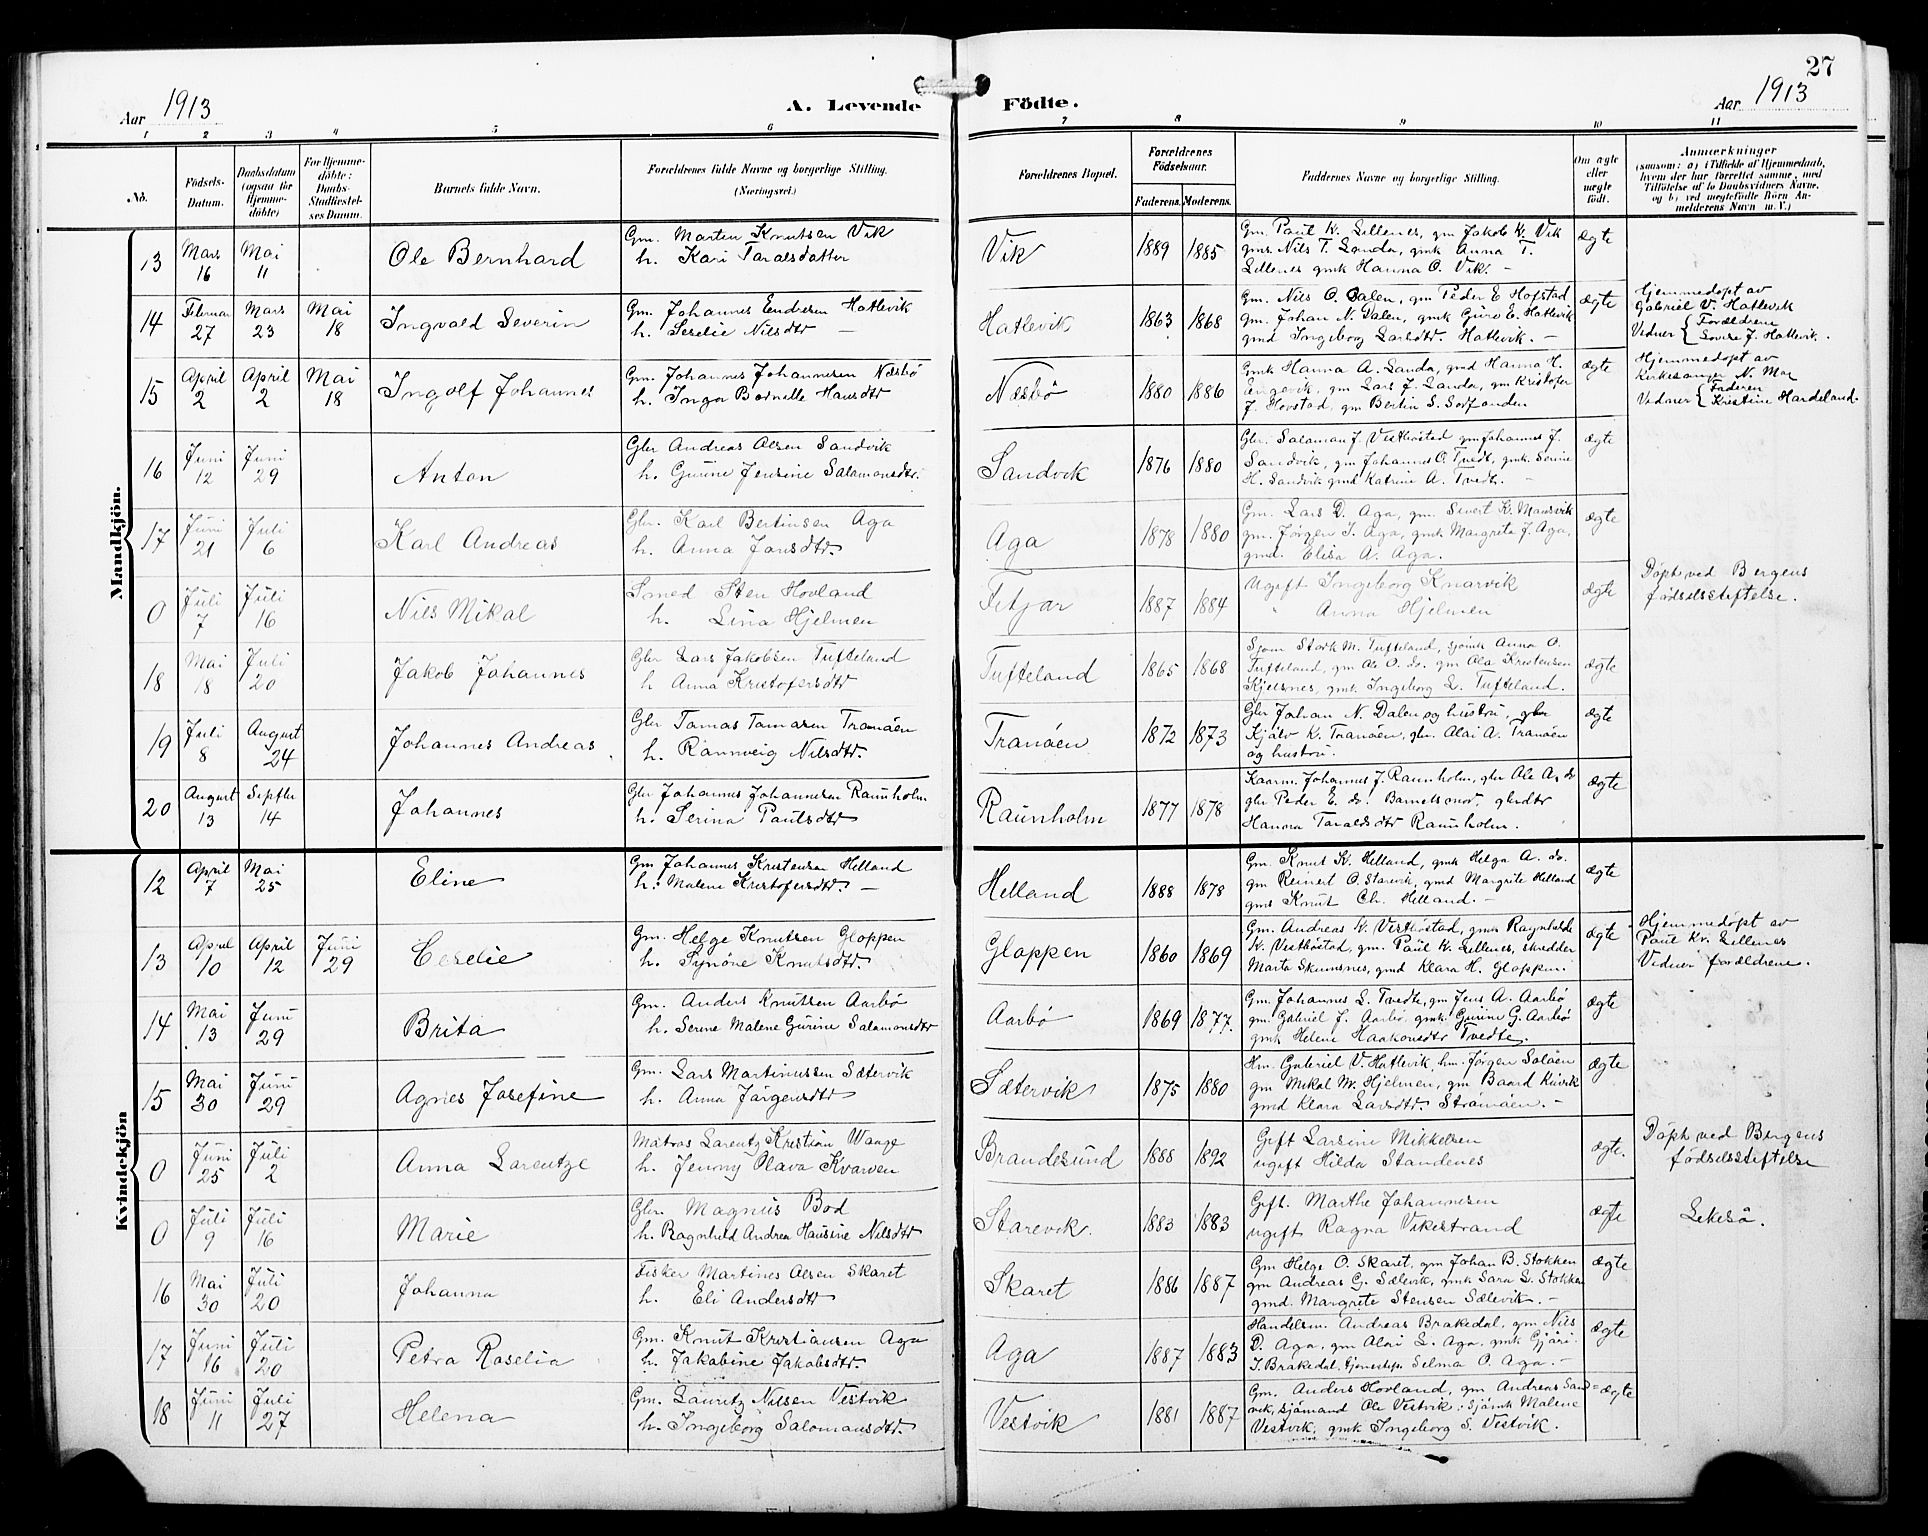 27
Aar 1913
A. Levende Födte.
Aar 1913
1 2 3 4 5 6 7 8 9 10 11
No.
Födsels-Datum.
Daabsdatum (ogsaa for Hjemme-döbte)
For Hjemme-döbte: Daabs-Stadfæstel-ses Datum.
Barnets fulde Navn.
Forældrenes fulde Navne og borgerlige Stilling. (Næringsvei.)
Forældrenes Bopæl.
Forældrenes Födselsaar.
Faderens. Moderens.
Faddernes Navne og borgerlige Stilling.
Om ægte eller uægte födt.
Anmærkninger
(saasom: a) i Tilfælde af Hjemmedaab, hvem der har forrettet samme, med Tilföielse af to Daabsvidners Navne, og b) ved uægtefödte Börn An-melderens Navn m. V.)
Mandkjön.
13 Mars 16 Mai 11 Ole Bernhard Gm. Martin Knutsen Vik h. Kari Taralsdatter Vik 1889 1885 Gm. Paul K. Lillenes, gm Jakob K. Vik gms Nils T. Landa, gmk Anna T. Lillenes gmk Hanna O. Vik. – ægte
14 Februar 27 Mars 23 Mai 18 Ingvald Severin Gm. Johannes Endresen Hatlevik h. Seselie Nilsdtr – Hatlevik 1863 1868 Gm. Nils O. Dalen, gm Peder E Hofstad, gm. Johan N. Dalen, gmk Guro E. Hatlevik gmd Ingeborg Larsdtr. Hatlevik. – ægte Hjemmedöpt av Gabriel V. Hatlevik Vidner { Forældrene Sovise J. Hatlevik.
15 April 2 April 2 Mai 18 Ingolf Johannes Gm. Johannes Johannesen Næsbö h. Inga Bornelle Hansdtr Næsbö 1880 1886 Gmk Hanna A. Landa, gmd Hanna H. Engevik, gm Lars J. Landa, gm Kristofer J. Hovstad, gm Bertin S. Sorfonden ægte Hjemmedöpt av Kirkesanger N. Mæ Vidner { Faderen Kristine Hardeland.
16 Juni 12 Juni 29 Anton Gbr Andreas Olsen Sandvik h. Gurine Jensine Salamonsdtr. Sandvik 1876 1880 Gbr. Salamon J. Vestböstad gm Johannes J. Sandvik, gm Johannes O. Tvedt, gmk. Serine H. Sandvik gmd Katrine A. Tvedt. – ægte
17 Juni 21 Juli 6 Karl Andreas Gbr. Karl Bertinsen Aga h. Anna Jansdtr. Aga 1878 1880 Gm. Lars D. Aga, gm. Sivert K. Mansvik gm. Jørgen I. Aga, gmk Margreta J. Aga, gmd. Elisa A. Aga. ægte
0 Juli 7 Juli 16 Nils Mikal Smed Sten Hovland h. Lina Hjelmen Fitjar 1887 1884 Ugift Ingeborg Knarvik " Anna Hjelmen ægte Döpt ved Bergens födselsstiftelse.
18 Mai 18 Juli 20 Jakob Johannes Gbr Lars Jakobsen Tufteland h Anna Kristofersdtr Tufteland 1865 1868 Sjøm Stark M. Tufteland, sjömk Anna O. Tufteland, gm Ole O. do. gm Ola Kristensen Kjelsnes, gmk Ingeborg L. Tufteland. ægte
19 Juli 8 August 24 Johannes Andreas. Gbr Tomas Tomasen Tranöen h. Rannveig Nilsdtr. Tranöen 1872 1873 Gbr Johan N. Dalen og hustru, gbr Kjälv K. Tranöen, gbr. Olai A. Tranöen og hustru. ægte
20 August 13 Septbr 14 Johannes Gbr Johannes Johannesen Raunholm h. Serina Paulsdtr Raunholm 1877 1878 Kaarm. Johannes J. Raunholm, gbr Ole A. do gbr Peder E. do. Barnets mor, gbrdtr Hanna Taraldsdtr Raunholm. ægte
Kvindekjön
12 April 7 Mai 25 Eline Gm Johannes Kristensen Helland h: Malene Kristofersdtr. – Helland 1888 1878 Gm. Knut K. Helland, gmk Helga A. do. gm Reinert O. Starevik, gmd Margrite Helland gms Knut Ch. Helland. – ægte
13 April 10 April 12 Juni 29 Ceselie Gm. Helge Knutsen Gloppen h. Synöve Knutsdtr. Gloppen 1860 1869 Gm. Andreas K. Vestböstad, gmk Ragnhilde K. Vestböstad, gm. Paul K. Lillenes, skredder Marta Skumsnes, gmd Klara H. Gloppen. ægte Hjemmedöpt av Paul Kr. Lillenes Vidner forældrene.
14 Mai 13 Juni 29 Brita Gm. Anders Knutsen Aarbö h. Serine Malene Gurine Salamonsdtr Aarbö 1869 1877. Gm. Johannes L. Tvedte, gm Jens A. Aarbö, gm. Gabriel J. Aarbö, gmk Gurine G. Aarbö gmk Helene Haakonsdtr Tvedte. ægte
15 Mai 30 Juni 29 Agnes Josefine Gm. Lars Martinussen Sætervik h. Anna Jørgensdtr Sætervik 1875 1880 Hm. Gabriel V. Hatlevik, hm. Jørgen Salöen gm Mikal M. Hjelmen, gm Baard Kuivik gmd Klara Larsdtr. Strömöen. – ægte
0 Juni 25 Juli 2 Anna Larentze Matros Larentz Kristian Wange h. Jenny Olava Kvarven Brandesund 1888 1892 Gift Larsine Mikkelsen ugift Hilda Standenes ægte. Döpt ved Bergens födselsstiftelse
0 Juli 9 Juli 16 Marie Gbr. Magnus Bod h. Ragnhild Andrea Hansine Nilsdtr Starevik. 1883 1883 Gift. Marthe Johannesen ugift Ragna Vikestrand ægte Lekesö.
16 Mai 30 Juli 20 Johanna Fisker Martines Olsen Skaret h. Eli Andersdtr Skaret 1886 1887 Gm Helge O. Skaret, gm Johan B. Stokken gm Andreas G. Sælevik, gmk Sara L. Stokken gmd. Margrete Stensen Sælevik. – ægte
17 Juni 16 Juli 20 Petra Roselia Gm. Knut Kristiansen Aga h. Jakobine Jakobsdtr. Aga 1887 1883 Handelsm. Andreas Brakedal, gm Nils D. Aga, gm Olai L. Aga, gmk Gjöri I. Brakedal, tjenestep. Selma O. Aga. – ægte
18 Juni 11 Juli 27 Helena Gm. Lauritz Nilsen Vestvik h. Ingeborg Salomonsdtr. Vestvik 1881 1887 Gm. Anders Hovland, gm Andreas Sand= vik, sjömand Ole Vestvik, sjömk Malene Vestvik, gmk Ingeborg S. Vestvik. ægte